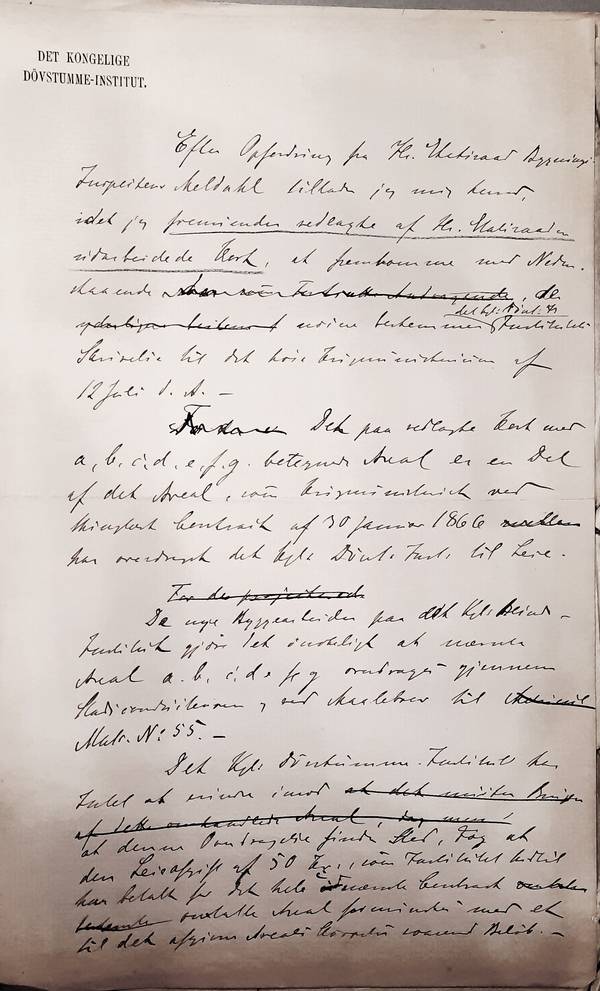 DET KONGELIGE
DÖVSTUMME-INSTITUT.
Efter Opfordring fra Hr. Etatsraad Bygnings-
Inspecteur Meldahl tillader jeg mig herved,
idet jeg fremsender vedlagte af Hr. Etatsraaden
udarbeidede Kort, at fremkomme med Neden-
staaende
det kgl: Dövst: I:
Institutets
Skrivelse til det höie Krigsministerium af
12 Juli d. A. —
Det paa vedlagte Kort med
a, b, c, d, e, f, g. betegnede Areal er en Del
af det Areal, som Krigsministeriet ved
thinglæst Contract af 30 Januar 1866
har overdraget det kgl: Dövst: Inst: til Leie.
For det projecterede
De nye Byggearbeider paa det Kgl: Blinde-
Institut gjör det önskeligt at nævnte
Areal a. b, c, d, e f g overdrages gjennem
ved Maalebrev til
Matr. No 55. —
Det Kgl: Dövstumme-Institut har
Intet at erindre imod
af dette omhandlede Areal, dog men
at denne Overdragelse finder Sted, dog at
den Leieafgift af 50 Kr., som Institutet hidtil
har betalt for det hele nævnte Contract
omtalte Areal formindskes med et
til det afgivne Areals Störrelse svarende Belöb. —